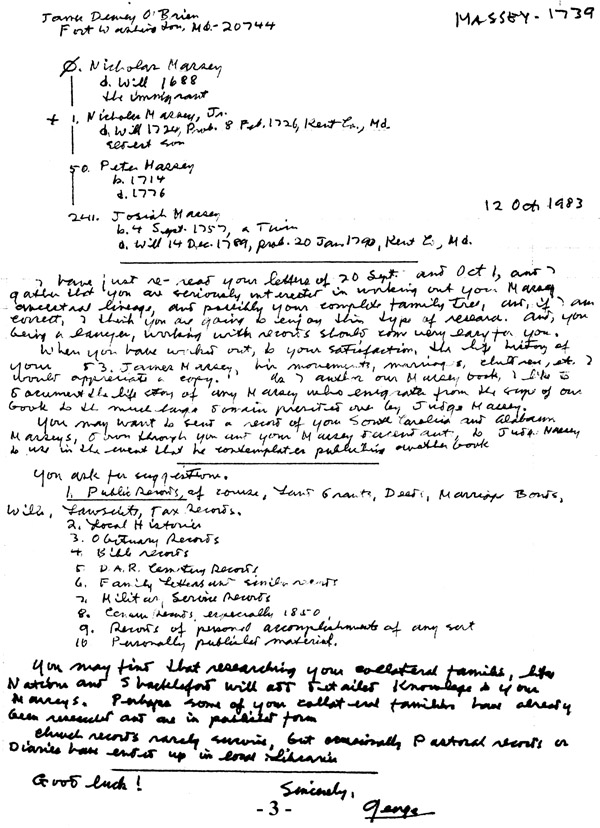 James Dewey O'Brien
Fort Washington, Md - 20744
MASSEY - 1739
0. Nicholas Massey
d. Will 1688
the immigrant
+ 1. Nicholas Massey, Jr.
d. Will 1724, Prob. 8 Feb. 1726, Kent Co., Md.
eldest son
50. Peter Massey
b. 1714
d. 1776
12 Oct 1983
241. Josiah Massey
b. 4 Sept. 1757, a Twin
d. Will 14 Dec. 1789, prob. 20 Jan. 1790, Kent Co., Md.
I have just re-read your letters of 20 Sept. and Oct 1, and I
gather that you are seriously interested in working out your Massey
ancestral lineage, and possibly your complete family tree, and, if I am
correct, I think you are going to enjoy this type of research. And, you
being a lawyer, working with records should come very easy for you.
When you have worked out, to your satisfaction, the life history of
your 53. James Massey, his movements, marriages, children, etc. I
would appreciate a copy. As I author our Massey book, I like to
document the life story of any Massey who emigrate from the scope of our
book to the much large domain presided over by Judge Massey.
You may want to send a record of your South Carolina and Alabama
Masseys, down through you and your Massey descendants, to Judge Massey
to use in the event that he contemplates publishing another book
You ask for suggestions.
1. Public Records, of course, Land Grants, Deeds, Marriage Bonds,
Wills, Lawsuits, Tax Records.
2. Local Histories
3. Obituary Records
4. Bible records
5. D.A.R. Cemetery Records
6. Family letters and similar records
7. Military Service Records
8. Census records, especially 1850
9. Records of personal accomplishments of any sort
10 Personally published material.
You may find that researching your collateral families, like
Nations and Shackleford will add detailed knowledge to your
Masseys. Perhaps some of your collateral families have already
been researched and are in published form
Church records rarely survive, but occasionally Pastoral records or
Diaries have ended up in local libraries
Good luck!
Sincerely,
George
- 3 -